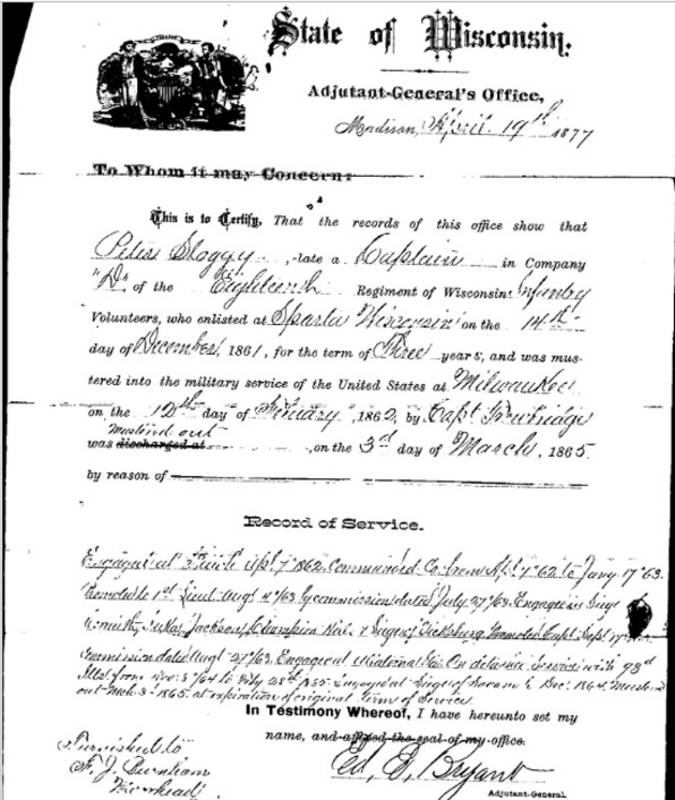 State of Wisconsin.
Adjutant-General's Office,
Madison, April 19th 1877
To Whom it may Concern:
This is to Certify, That the records of this office show that
Peter Sloggy, late a Captain in Company
"D" of the Eighteenth Regiment of Wisconsin Infantry
Volunteers, who enlisted at Sparta Wisconsin on the 14th
day of December, 1861, for the term of Three years, and was mus-
tered into the military service of the United States at Milwaukee
on the 12th day of February, 1862, by Capt. Trowbridge
Mustered out
was discharged at , on the 3rd day of March, 1865.
by reason of
Record of Service.
Engaged at Apl. 7" 1862. Commanded Co. from Apl. 7" 62 to Jany. 17" 63.
Promoted to 1st Lieut. Augt 4"/63 by commission dated July 27"/63. Engaged in
Jackson, Champion Hill & Siege of Vicksburg. Promoted Capt. Sept. 17"
Commission dated Augt. 27"/63. Engaged at On detached service with 93rd
Ills. from Nov. 3"/64 to 28th Engaged at Siege of Savannah Dec. 1864. Mustered
out Mch. 3" 1865, at expiration of original term of service.
In Testimony Whereof, I have hereunto set my
name, and affixed the seal of my office.
Furnished to
F. J. Burnham
Moorhead
Ed. E. Bryant
Adjutant-General.